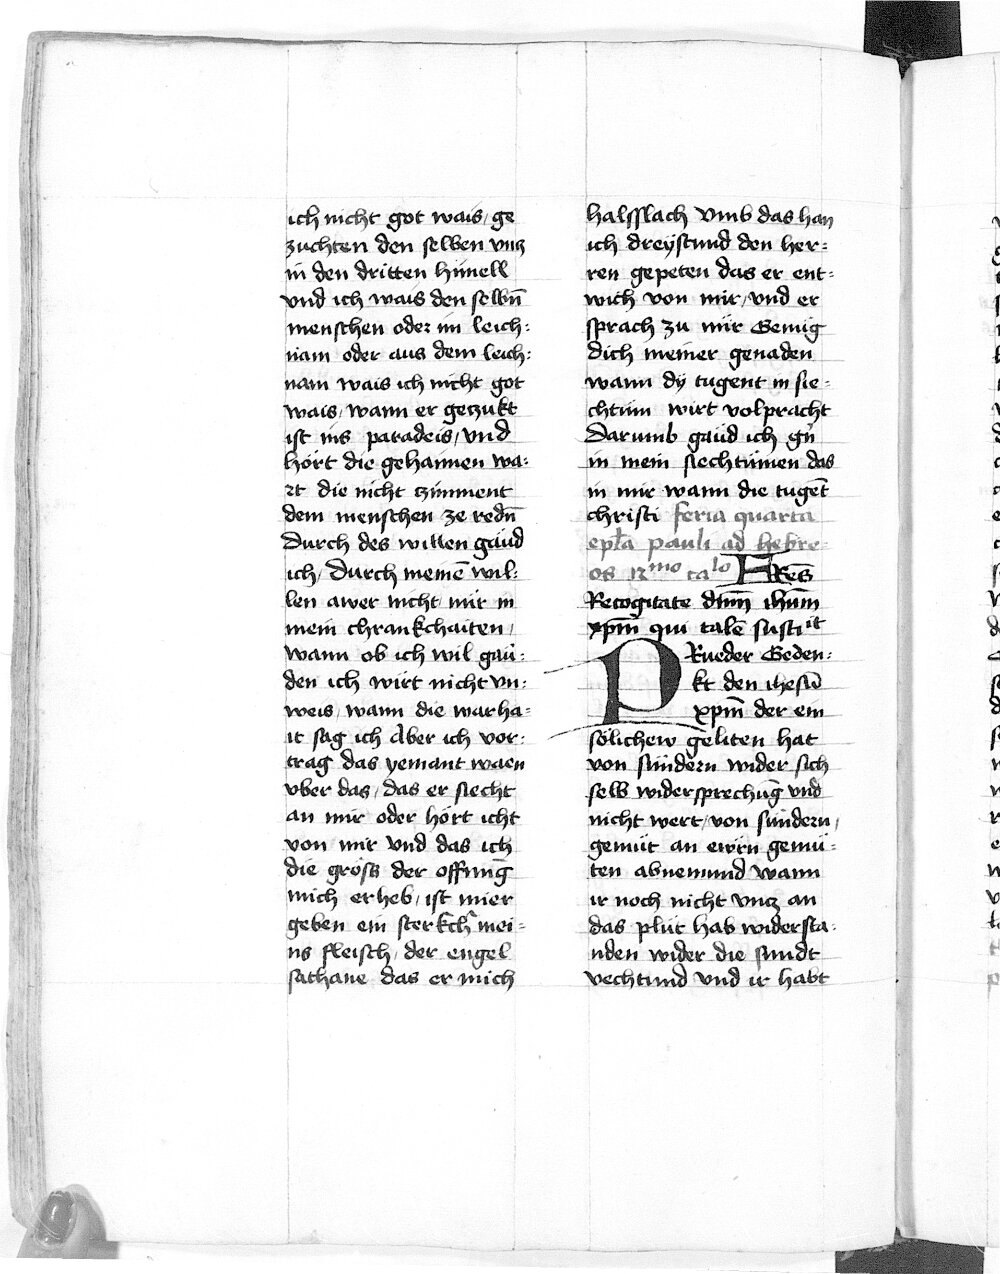 ich nicht got wais / ge
zuchten den selben vncz
in den dritten himell
vnd ich wais den selbn̄
menschen oder im leich:
nam oder aus dem leich:
nam wais ich nicht got
wais / wann er geczukt
ist ins paradeis / vnd
hört die gehaimen wa:
rt die nicht czimment
dem menschen ze redn̄
Durch des willen gäud
ich / Durch meinē wil:
len awer nicht / mir in
mein chrankchaiten /
wann ob ich wil gäu:
den ich wirt nicht vn:
weis / wann die warha:
it sag ich Aber ich vor:
trag das yemant waen
vber das / das er siecht
an mir oder hört icht
von mir vnd das ich
die gröss der offnūg
mich erheb / ist mier
geben ein sterkch mei:
ns fleisch / der engel
sathane das er mich
halsslach vmb das han
ich dreÿstund den her:
ren gepeten das er ent:
wich von mir / vnd er
sprach zu mir Genüg
dich meiner genaden
wann dÿ tugent in sie:
chtüm wirt volpracht
Darumb gäud ich gn̄
in mein siechtümen das
in mir wann die tugēt
christi feria quarta
epl̄a pauli ad hebre
os 12mo calo FRes
Recogitate dn̄m ihūm
xpm̄ qui talē sustiit
PRueder Geden:
kt den ihesū
xpm̄ der ein
sölichew geliten hat
von sündern wider sich
selb widersprechūg vnd
nicht wert / von sündern /
gemüt an ewrn gemü:
ten abnemund wann
ir noch nicht vncz an
das plüt hab widersta:
nden wider die sundt
vechtund vnd ir habt